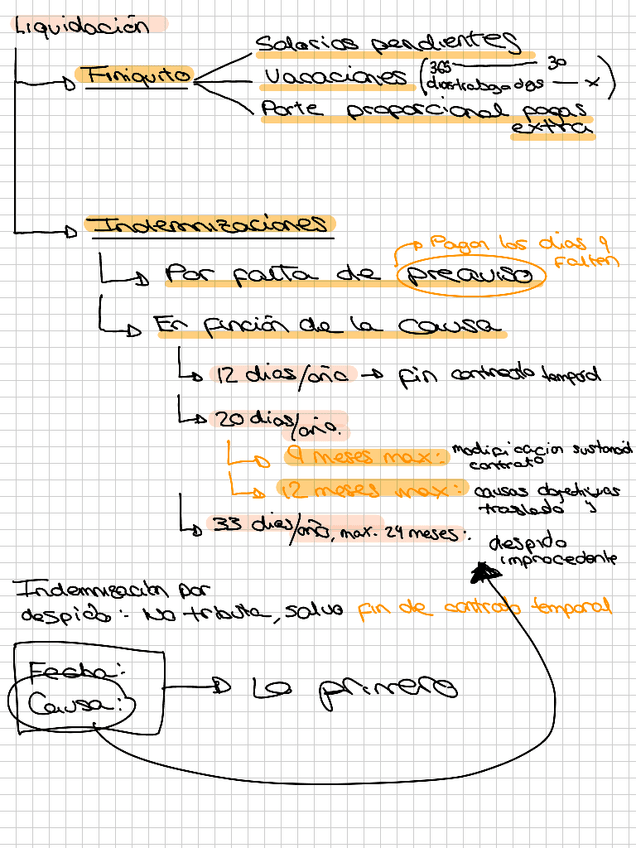 Liquidación
Finiquito
Salarios pendientes
Vacaciones (365 — 30
días trabajados — x)
Parte proporcional pagas
extra
Indemnizaciones
Pagar los dias q
falten
Por falta de preaviso
En función de la causa
12 dias/año → fin contrato temporal
20 dias/año.
9 meses max: modificacion sustancial
contrato
12 meses max: causas objetivas
traslado y
33 dias/año, max. 24 meses:
despido
improcedente
Indemnización por
despido: No tributa, salvo fin de contrato temporal
Fecha:
Causa:
Lo primero